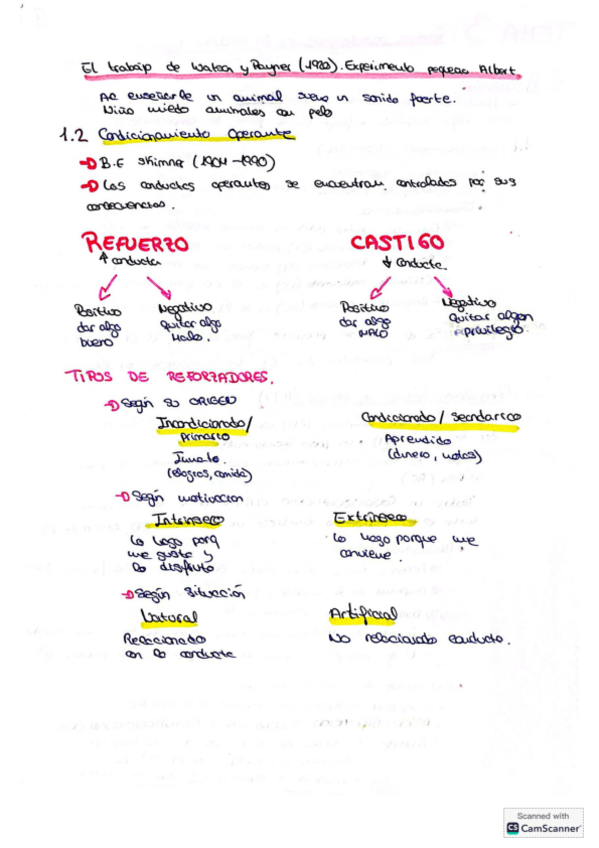 El trabajo de Watson y Rayner (1920). Experimento pequeño Albert
Al enseñarle un animal suena un sonido fuerte.
Niño miedo animales con pelo
1.2 Condicionamiento operante
B.F Skinner (1904-1990)
Las conductas operantes se encuentran controladas por sus
consecuencias.
REFUERZO CASTIGO
↑ conducta ↓ conducta.
Positivo Negativo Positivo Negativo
dar algo Quitar algo dar algo Quitar algún
bueno Malo. MALO privilegio
TIPOS DE REFORZADORES.
Según su ORIGEN
Incondicionado/ Condicionado / Secundario
Primario
Innato. Aprendido
(comida) (dinero, notas)
Según motivación
Intrínseco Extrínseco
Lo hago porq Lo hago porque me
me gusta y conviene.
lo disfruto
Según situación
Natural Artificial
Relacionado No relacionado conducta.
con la conducta
Scanned with
CS CamScanner